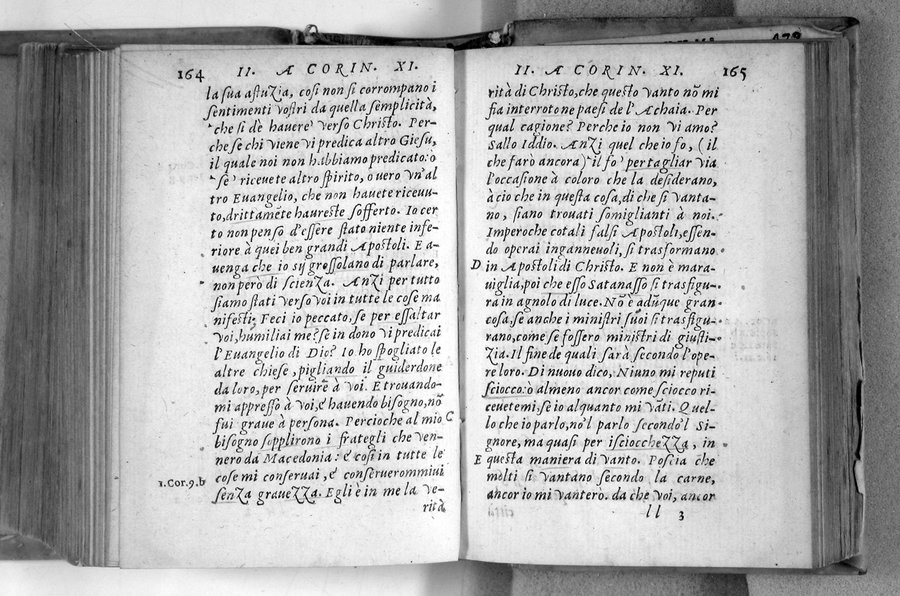 164 II. A CORIN. XI.
la sua astuzia, cosi non si corrompano i
sentimenti vostri da quella semplicità,
che si de hauere verso Christo. Per-
che se chi viene vi predica altro Giesu,
il quale noi non habbiamo predicato: o
se riceuete altro spirito, o vero vn'al
tro Euangelio, che non hauete riceuu-
to, drittamēte haureste sofferto. Io cer
to non penso d'essere stato niente infe-
riore à quei ben grandi Apostoli. E a-
uenga che io sij grossolano di parlare,
non però di scienza. Anzi per tutto
siamo stati verso voi in tutte le cose ma
nifesti. Feci io peccato, se per essaltar
voi, humiliai me? se in dono vi predicai
l'Euangelio di Dio? Io ho spogliato le
altre chiese, pigliando il guiderdone
da loro, per seruire à voi. E trouando-
mi appresso à voi, e hauendo bisogno, nō
fui graue à persona. Percioche al mio C
bisogno sopplirono i frategli che ven-
nero da Macedonia: e cosi in tutte le
cose mi conseruai, e conseruerommiui
1.Cor.9.b
senza grauezza. Egli è in me la ve-
rità
II. A CORIN. XI. 165
rità di Christo, che questo vanto nō mi
fia interrotone paesi de l'Achaia. Per
qual cagione? Perche io non vi amo?
Sallo Iddio. Anzi quel che io fo, (il
che farò ancora) il fo per tagliar via
l'occasione à coloro che la desiderano,
à cio che in questa cosa, di che si vanta-
no, siano trouati somiglianti à noi.
Imperoche cotali falsi Apostoli, essen-
do operai ingannevoli, si trasformano
D in Apostoli di Christo. E non è mara-
uiglia, poi che esso Satanasso si trasfigu-
ra in agnolo di luce. Nō è adūque gran
cosa, se anche i ministri suoi si trasfigu-
rano, come se fossero ministri di giusti-
zia. Il fine de quali sarà secondo l'ope-
re loro. Di nuouo dico, Niuno mi reputi
sciocco: ò almeno ancor come sciocco ri-
ceuetemi, se io alquanto mi vāti. Quel-
lo che io parlo, nō'l parlo secondo'l Si-
gnore, ma quasi per isciocchezza, in
E questa maniera di vanto. Poscia che
molti si vantano secondo la carne,
ancor io mi vantero. da che voi, ancor
ll 3